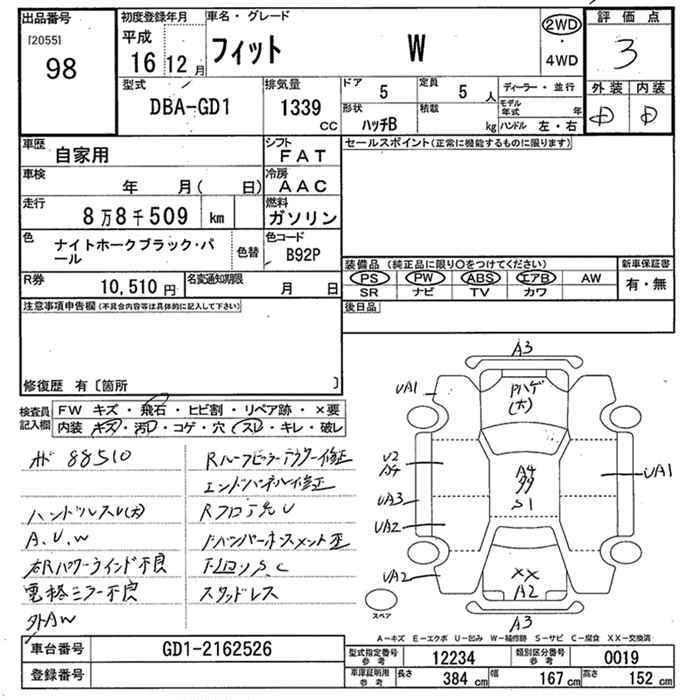 出品番号
[2055]
98
初度登録年月
平成
16 12 月
車名・グレード
フィット W
2WD
・
4WD
評価点
3
外装 内装
D D
型式
DBA-GD1
排気量
1339
CC
ドア
5
定員
5 人
形状
ハッチB
積載
kg
ディーラー・並行
モデル年式 年
ハンドル 左・右
車歴
自家用
シフト
FAT
車検
年 月( 日)
冷房
AAC
走行
8万8千509 km
燃料
ガソリン
色
ナイトホークブラック・パール
色替
色コード
B92P
R券
10,510 円
名変通知期限
月 日
セールスポイント(正常に機能するものに限ります)
装備品 (純正品に限り○をつけてください)
PS PW ABS エアB AW
SR ナビ TV カワ
新車保証書
有・無
後日品
注意事項申告欄(不具合内容等は具体的に記入して下さい)
修復歴 有〔箇所 〕
検査員記入欄
FW キズ・飛石・ヒビ割・リペア跡・×要
内装・キズ・汚れ・コゲ・穴・スレ・キレ・破レ
88510
Rルーフピラー 修正
エンドパネル修正
ハンドルスレ(大)
A.U.W
右Rパワーウインド不良
電格ミラー不良
外AW
S.C
スタッドレス
A3
UA1
Pハゲ
(大)
U2
A4
UA3
UA2
UA2
A4
S1
UA1
XX
A2
A3
スペア
A-キズ E-エクボ U-凹み W-補修跡 S-サビ C-腐食 XX-交換済
車台番号
GD1-2162526
登録番号
型式指定番号 参考
12234
類別区分番号 参考
0019
車庫証明用 参考
長さ 384 cm
幅 167 cm
高さ 152 cm